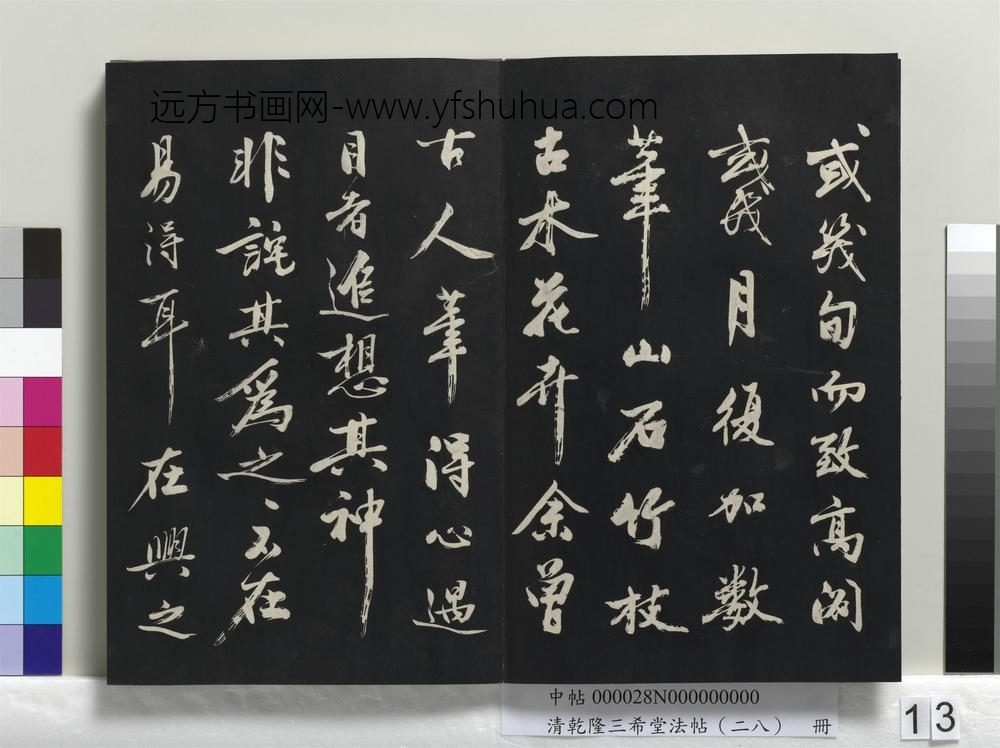 远方书画网-www.yfshuhua.com
或幾旬而致高閣
或幾月復加數
筆山石竹枝
古木花卉余曾
古人筆得心遇
目者追想其神
非說其爲之〻不在
易得耳在興之
中帖 000028N000000000
清乾隆三希堂法帖（二八） 冊
13